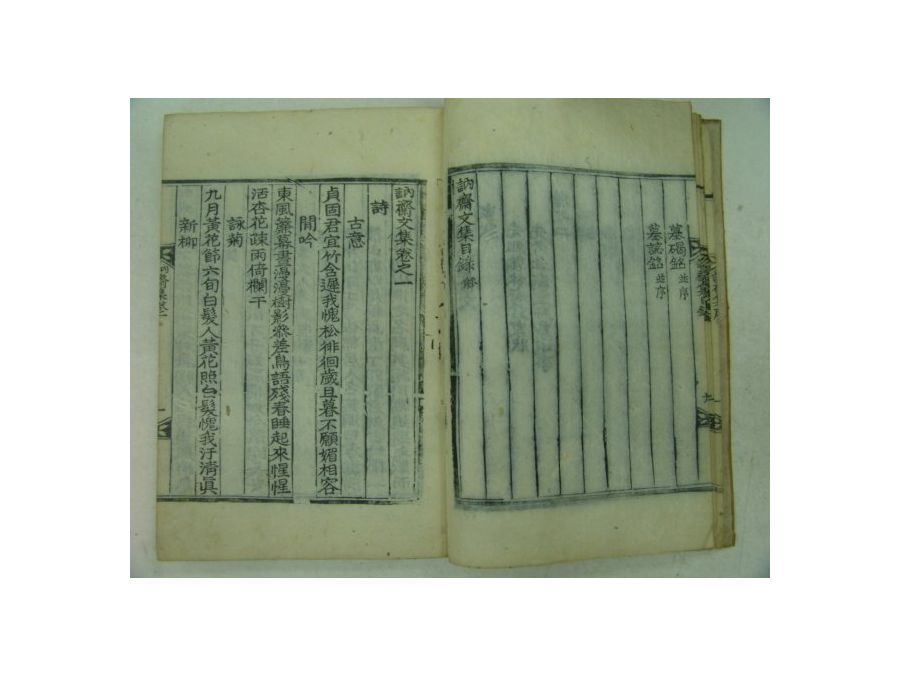 墓碣銘 並序
墓誌銘 並序
訥齋文集目錄 終
訥齋文集卷之一
詩
古意
貞固君宜竹含遲我愧松徘徊歲且暮不願媚相容
閒吟
東風簾幕晝樹影參差鳥語殘春睡起來惺惺
活杏花疎雨倚欄干
詠菊
九月黃花節六旬白髮人黃花照白髮愧我汙淸眞
新柳